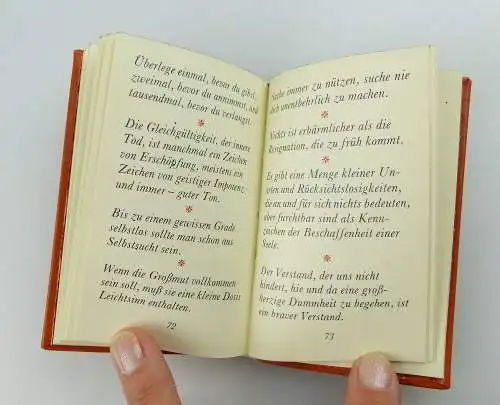 Überlege einmal, bevor du gibst,
zweimal, bevor du annimmst, und
tausendmal, bevor du verlangst.
*
Die Gleichgültigkeit, der innere
Tod, ist manchmal ein Zeichen
von Erschöpfung, meistens ein
Zeichen von geistiger Impotenz
und immer – guter Ton.
*
Bis zu einem gewissen Grade
selbstlos sollte man schon aus
Selbstsucht sein.
*
Wenn die Großmut vollkommen
sein soll, muß sie eine kleine Dosis
Leichtsinn enthalten.
72
Suche immer zu nützen, suche nie
dich unentbehrlich zu machen.
*
Nichts ist erbärmlicher als die
Resignation, die zu früh kommt.
*
Es gibt eine Menge kleiner Un-
arten und Rücksichtslosigkeiten,
die an und für sich nichts bedeuten,
aber furchtbar sind als Kenn-
zeichen der Beschaffenheit einer
Seele.
*
Der Verstand, der uns nicht
hindert, hie und da eine groß-
herzige Dummheit zu begehen, ist
ein braver Verstand.
73